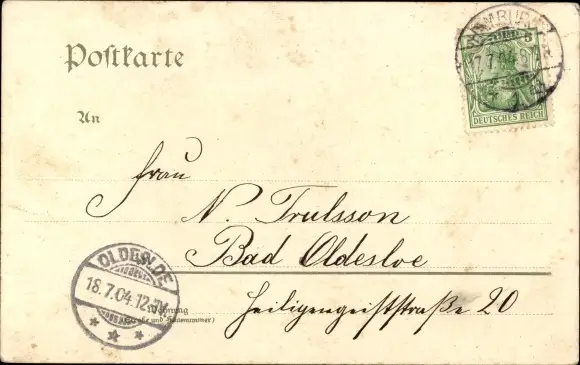 Postkarte
HAMBURG
5
7.7.04
DEUTSCHES REICH
An
Frau
N. Trulsson
Bad Oldesloe
Heiligengeiststraße 20
18.7.04.12
(Straße und Hausnummer)